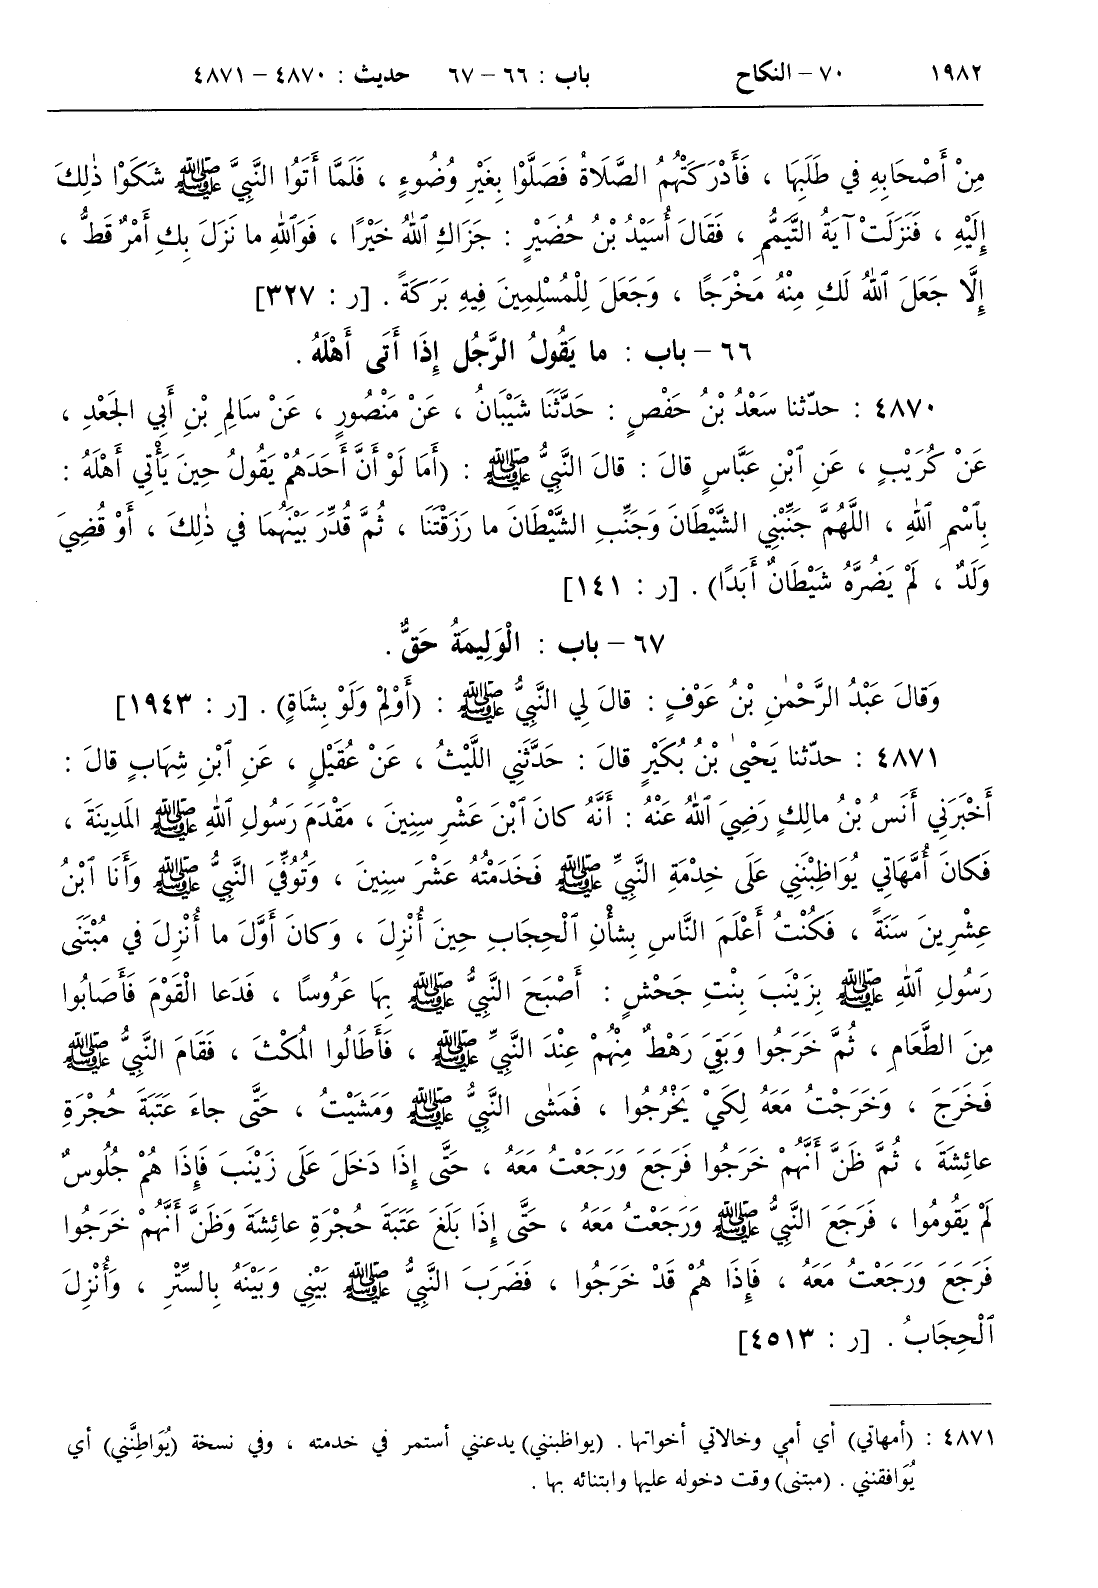 ١٩٨٢ ٧٠ – النكاح باب : ٦٦ – ٦٧ حديث : ٤٨٧٠ – ٤٨٧١
مِنْ أَصْحَابِهِ في طَلَبِهَا ، فَأَدْرَكَتْهُمُ الصَّلَاةُ فَصَلَّوْا بِغَيْرِ وُضُوءٍ ، فَلَمَّا أَتَوُا النَّبِيَّ ﷺ شَكَوْا ذٰلِكَ
إِلَيْهِ ، فَنَزَلَتْ آيَةُ التَّيَمُّمِ ، فَقَالَ أُسَيْدُ بْنُ حُضَيْرٍ : جَزَاكِ ٱللهُ خَيْرًا ، فَوَٱللهِ ما نَزَلَ بِكِ أَمْرٌ قَطُّ ،
إِلَّا جَعَلَ ٱللهُ لَكِ مِنْهُ مَخْرَجًا ، وَجَعَلَ لِلْمُسْلِمِينَ فِيهِ بَرَكَةً . [ر : ٣٢٧]
٦٦ – باب : ما يَقُولُ الرَّجُلُ إِذَا أَتَى أَهْلَهُ .
٤٨٧٠ : حدّثنا سَعْدُ بْنُ حَفْصٍ : حَدَّثَنَا شَيْبَانُ ، عَنْ مَنْصُورٍ ، عَنْ سَالِمِ بْنِ أَبِي الجَعْدِ ،
عَنْ كُرَيْبٍ ، عَنِ ٱبْنِ عَبَّاسٍ قالَ : قالَ النَّبِيُّ ﷺ : (أَمَا لَوْ أَنَّ أَحَدَهُمْ يَقُولُ حِينَ يَأْتِي أَهْلَهُ :
بِٱسْمِ ٱللهِ ، اللَّهُمَّ جَنِّبْنِي الشَّيْطَانَ وَجَنِّبِ الشَّيْطَانَ ما رَزَقْتَنَا ، ثُمَّ قُدِّرَ بَيْنَهُمَا في ذٰلِكَ ، أَوْ قُضِيَ
وَلَدٌ ، لَمْ يَضُرَّهُ شَيْطَانٌ أَبَدًا) . [ر : ١٤١]
٦٧ – باب : الْوَلِيمَةُ حَقٌّ .
وَقالَ عَبْدُ الرَّحْمٰنِ بْنُ عَوْفٍ : قالَ لِي النَّبِيُّ ﷺ : (أَوْلِمْ وَلَوْ بِشَاةٍ) . [ر : ١٩٤٣]
٤٨٧١ : حدّثنا يَحْيىٰ بْنُ بُكَيْرٍ قالَ : حَدَّثَنِي اللَّيْثُ ، عَنْ عُقَيْلٍ ، عَنِ ٱبْنِ شِهَابٍ قالَ :
أَخْبَرَنِي أَنَسُ بْنُ مالِكٍ رَضِيَ ٱللهُ عَنْهُ : أَنَّهُ كانَ ٱبْنَ عَشْرِ سِنِينَ ، مَقْدَمَ رَسُولِ ٱللهِ ﷺ المَدِينَةَ ،
فَكانَ أُمَّهَاتِي يُوَاظِبْنَنِي عَلَى خِدْمَةِ النَّبِيِّ ﷺ فَخَدَمْتُهُ عَشْرَ سِنِينَ ، وَتُوُفِّيَ النَّبِيُّ ﷺ وَأَنَا ٱبْنُ
عِشْرِينَ سَنَةً ، فَكُنْتُ أَعْلَمَ النَّاسِ بِشَأْنِ ٱلْحِجَابِ حِينَ أُنْزِلَ ، وَكانَ أَوَّلَ ما أُنْزِلَ في مُبْتَنَى
رَسُولِ ٱللهِ ﷺ بِزَيْنَبَ بِنْتِ جَحْشٍ : أَصْبَحَ النَّبِيُّ ﷺ بِهَا عَرُوسًا ، فَدَعا الْقَوْمَ فَأَصَابُوا
مِنَ الطَّعَامِ ، ثُمَّ خَرَجُوا وَبَقِيَ رَهْطٌ مِنْهُمْ عِنْدَ النَّبِيِّ ﷺ ، فَأَطَالُوا المُكْثَ ، فَقَامَ النَّبِيُّ ﷺ
فَخَرَجَ ، وَخَرَجْتُ مَعَهُ لِكَيْ يَخْرُجُوا ، فَمَشَى النَّبِيُّ ﷺ وَمَشَيْتُ ، حَتَّى جاءَ عَتَبَةَ حُجْرَةِ
عائِشَةَ ، ثُمَّ ظَنَّ أَنَّهُمْ خَرَجُوا فَرَجَعَ وَرَجَعْتُ مَعَهُ ، حَتَّى إِذَا دَخَلَ عَلَى زَيْنَبَ فَإِذَا هُمْ جُلُوسٌ
لَمْ يَقُومُوا ، فَرَجَعَ النَّبِيُّ ﷺ وَرَجَعْتُ مَعَهُ ، حَتَّى إِذَا بَلَغَ عَتَبَةَ حُجْرَةِ عائِشَةَ وَظَنَّ أَنَّهُمْ خَرَجُوا
فَرَجَعَ وَرَجَعْتُ مَعَهُ ، فَإِذَا هُمْ قَدْ خَرَجُوا ، فَضَرَبَ النَّبِيُّ ﷺ بَيْنِي وَبَيْنَهُ بِالسِّتْرِ ، وَأُنْزِلَ
ٱلْحِجَابُ . [ر : ٤٥١٣]
٤٨٧١ : (أمهاتي) أي أمي وخالاتي أخواتها . (يواظبنني) يدعنني أستمر في خدمته ، وفي نسخة (يُوَاطِئْنَنِي) أي
يُوَافقنني . (مبتنى) وقت دخوله عليها وابتنائه بها .